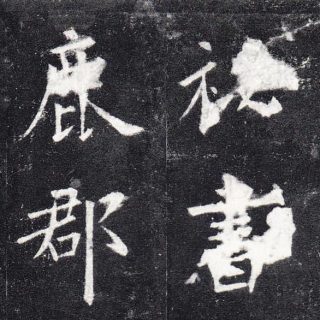 秘書
鹿郡